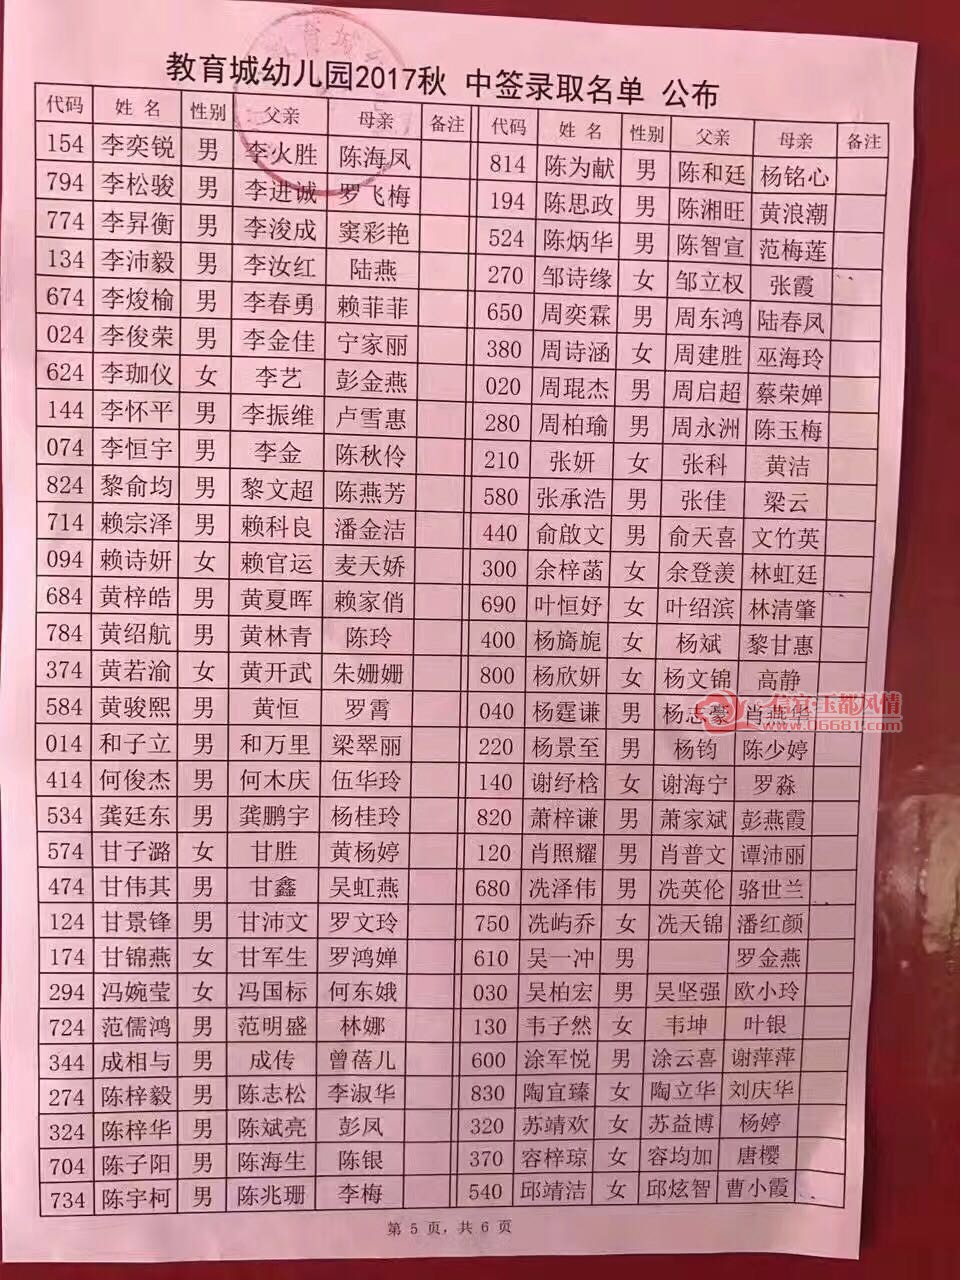 教育城幼儿园2017秋 中签录取名单 公布
代码 姓名 性别 父亲 母亲 备注 代码 姓名 性别 父亲 母亲 备注
154 李奕锐 男 李火胜 陈海凤 814 陈为献 男 陈和廷 杨铭心
794 李松骏 男 李进诚 罗飞梅 194 陈思政 男 陈湘旺 黄浪潮
774 李昇衡 男 李浚成 窦彩艳 524 陈炳华 男 陈智宣 范梅莲
134 李沛毅 男 李汝红 陆燕 270 邹诗缘 女 邹立权 张霞
674 李焌榆 男 李春勇 赖菲菲 650 周奕霖 男 周东鸿 陆春凤
024 李俊荣 男 李金佳 宁家丽 380 周诗涵 女 周建胜 巫海玲
624 李珈仪 女 李艺 彭金燕 020 周琨杰 男 周启超 蔡荣婵
144 李怀平 男 李振维 卢雪惠 280 周柏瑜 男 周永洲 陈玉梅
074 李恒宇 男 李金 陈秋伶 210 张妍 女 张科 黄洁
824 黎俞均 男 黎文超 陈燕芳 580 张承浩 男 张佳 梁云
714 赖宗泽 男 赖科良 潘金洁 440 俞啟文 男 俞天喜 文竹英
094 赖诗妍 女 赖官运 麦天娇 300 余梓菡 女 余登羡 林虹廷
684 黄梓皓 男 黄夏晖 赖家俏 690 叶恒妤 女 叶绍滨 林清肇
784 黄绍航 男 黄林青 陈玲 400 杨旖旎 女 杨斌 黎甘惠
374 黄若渝 女 黄开武 朱姗姗 800 杨欣妍 女 杨文锦 高静
584 黄骏熙 男 黄恒 罗霄 040 杨霆谦 男 杨志豪 肖燕
014 和子立 男 和万里 梁翠丽 220 杨景至 男 杨钧 陈少婷
414 何俊杰 男 何木庆 伍华玲 140 谢纾桅 女 谢海宁 罗淼
534 龚廷东 男 龚鹏宇 杨桂玲 820 萧梓谦 男 萧家斌 彭燕霞
574 甘子潞 女 甘胜 黄杨婷 120 肖照耀 男 肖普文 谭沛丽
474 甘伟其 男 甘鑫 吴虹燕 680 冼泽伟 男 冼英伦 骆世兰
124 甘景锋 男 甘沛文 罗文玲 750 冼屿乔 女 冼天锦 潘红颜
174 甘锦燕 女 甘军生 罗鸿婵 610 吴一冲 男 罗金燕
294 冯婉莹 女 冯国标 何东娥 030 吴柏宏 男 吴坚强 欧小玲
724 范儒鸿 男 范明盛 林娜 130 韦子然 女 韦坤 叶银
344 成相与 男 成传 曾蓓儿 600 涂军悦 男 涂云喜 谢萍萍
274 陈梓毅 男 陈志松 李淑华 830 陶宜臻 女 陶立华 刘庆华
324 陈梓华 男 陈斌亮 彭凤 320 苏靖欢 女 苏益博 杨婷
704 陈子阳 男 陈海生 陈银 370 容梓琼 女 容均加 唐樱
734 陈宇柯 男 陈兆珊 李梅 540 邱靖洁 女 邱炫智 曹小霞
第 5 页，共 6 页
玉都风情
www.06681.com